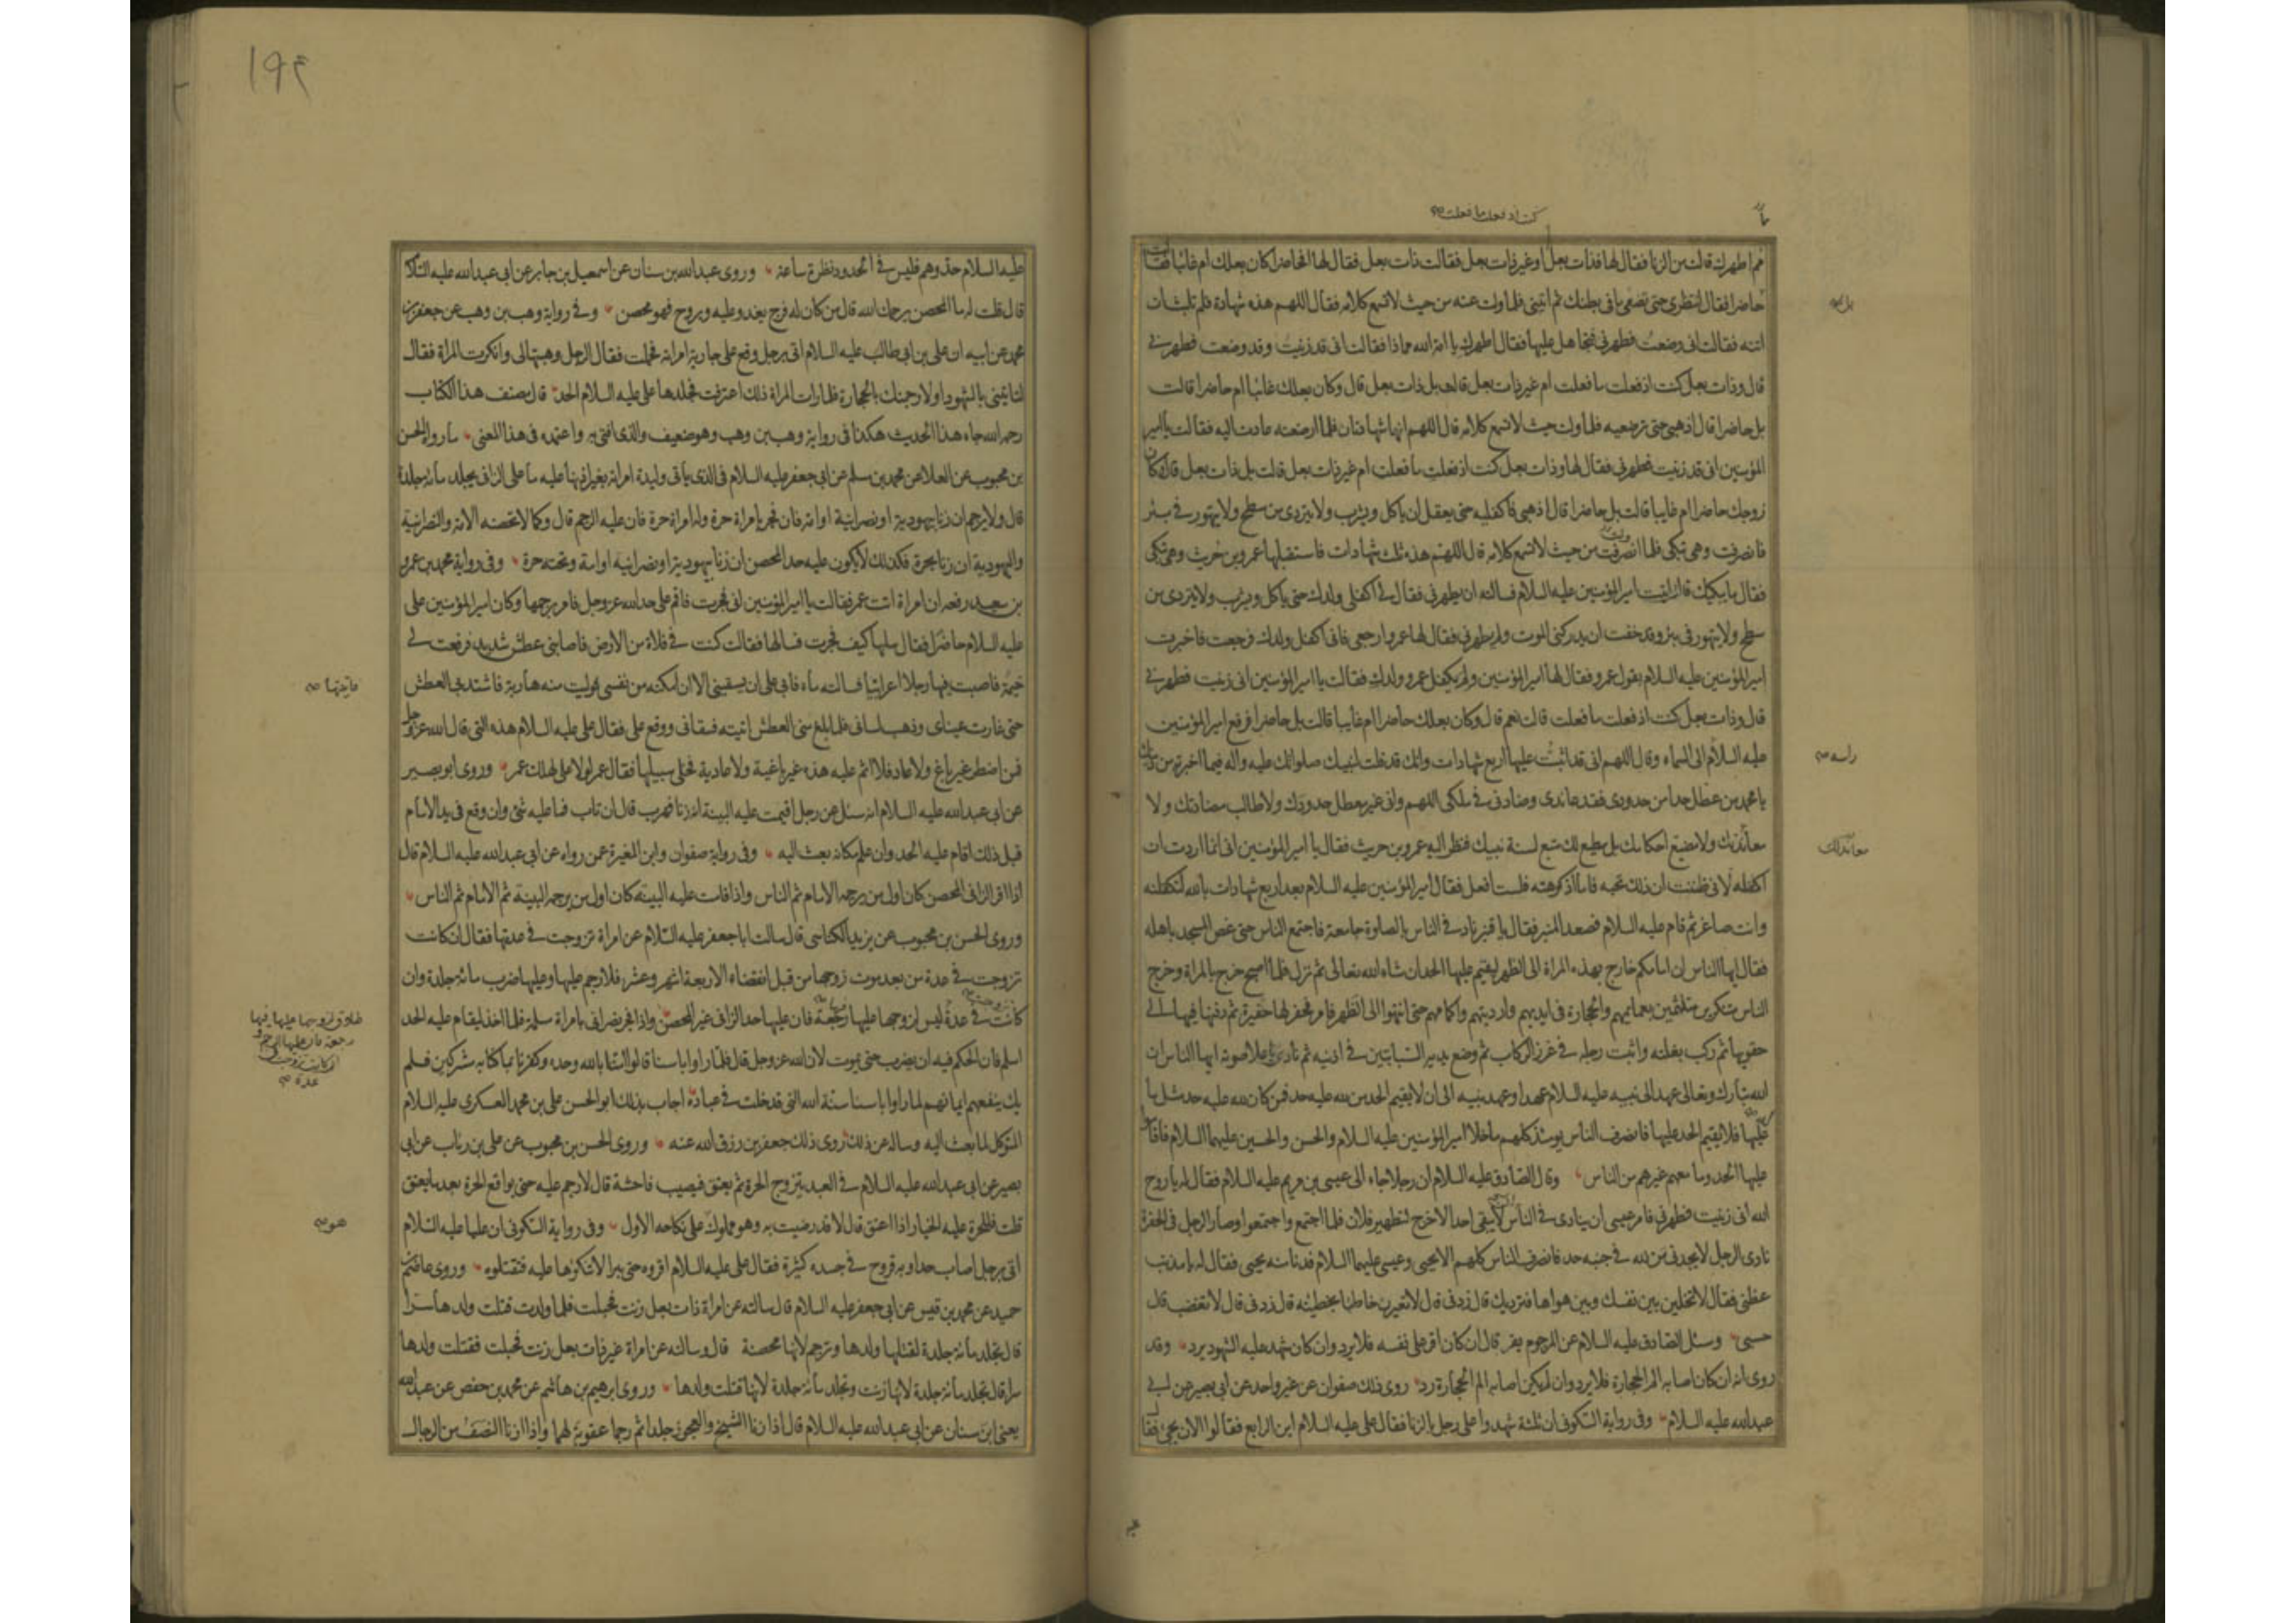 مم اطهرك قالت من الزنا فقال لها فذات بعل او غير ذات بعل فقالت ذات بعل فقال لها افحاضرا كان بعلك ام غائبا فقالت
حاضرا فقال انتظرى حتى تضعى ما فى بطنك ثم ائتينى فلما ولت عنه من حيث لا تسمع كلامه فقال اللهم هذه شهادة فلم تلبث ان
اتته فقالت انى وضعت فطهرنى فتجاهل عليها فقال اطهرك يا امة الله مما ذا فقالت انى قد زنيت وقد وضعت فطهرنى
قال وذات بعل كنت اذ فعلت ما فعلت ام غير ذات بعل قالت بل ذات بعل قال وكان بعلك غائبا ام حاضرا قالت
بل حاضرا قال اذهبى حتى ترضعيه فلما ولت حيث لا تسمع كلامه قال اللهم انها شهادتان فلما ارضعته عادت اليه فقالت يا امير
المؤمنين انى قد زنيت فطهرنى فقال لها وذات بعل كنت اذ فعلت ما فعلت ام غير ذات بعل قالت بل ذات بعل قال وكان
زوجك حاضرا ام غايبا قالت بل حاضرا قال اذهبى فاكفليه حتى يعقل ان ياكل ويشرب ولا يتردى من سطح ولا يتهور فى بئر
فانصرفت وهى تبكى فلما انصرفت من حيث لا تسمع كلامه قال اللهم هذه ثلث شهادات فاستقبلها عمرو بن حريث وهى تبكى
فقال ما يبكيك قالت اتيت امير المؤمنين عليه السلام فسالته ان يطهرنى فقال لى اكفلى ولدك حتى ياكل ويشرب ولا يتردى من
سطح ولا يتهور فى بئر وقد خفت ان يدركنى الموت ولم يطهرنى فقال لها عمرو ارجعى فانى اكفل ولدك فرجعت فاخبرت
امير المؤمنين عليه السلام بقول عمرو فقال لها امير المؤمنين ولم يكفل عمرو ولدك فقالت يا امير المؤمنين انى زنيت فطهرنى
قال وذات بعل كنت اذ فعلت ما فعلت قالت نعم قال وكان بعلك حاضرا ام غايبا قالت بل حاضرا فرفع امير المؤمنين
عليه السلام الى السماء وقال اللهم انى قد اثبت عليها اربع شهادات وانك قد قلت لنبيك صلواتك عليه واله فيما اخبرته من دينك
يا محمد من عطل حدا من حدودى فقد عاندنى وضادنى فى ملكى اللهم وانى غير معطل حدودك ولا طالب مضادتك ولا
معاندتك ولا مضيع احكامك بل مطيع لك متبع لسنة نبيك فنظر اليه عمرو بن حريث فقال يا امير المؤمنين انى انما اردت ان
اكفله لانى ظننت ان ذلك تحبه فاما اذ كرهته فلست افعل فقال امير المؤمنين عليه السلام بعد اربع شهادات بالله لتكفلنه
وانت صاغر ثم قام عليه السلام فصعد المنبر فقال يا قنبر ناد فى الناس بالصلوة جامعة فاجتمع الناس حتى غص المسجد باهله
فقال ايها الناس ان امامكم خارج بهذه المراة الى الظهر ليقيم عليها الحد ان شاء الله تعالى ثم نزل فلما اصبح خرج بالمراة وخرج
الناس متنكرين متلثمين بعمائمهم والحجارة فى ايديهم وارديتهم واكمامهم حتى انتهوا الى الظهر فامر فحفر لها حفيرة ثم دفنها فيها الى
حقويها ثم ركب بغلته واثبت رجله فى غرز الركاب ثم وضع يديه السبابتين فى اذنيه ثم نادى باعلا صوته ايها الناس ان
الله تبارك وتعالى عهد الى نبيه عليه السلام عهدا وعهد نبيه الى ان لا يقيم الحد من لله عليه حد فمن كان لله عليه حد مثل ما
عليها فلا يقيم الحد عليها فانصرف الناس يومئذ كلهم ما خلا امير المؤمنين عليه السلام والحسن والحسين عليهما السلام فاقاموا
عليها الحد وما معهم غيرهم من الناس وقال الصادق عليه السلام ان رجلا جاء الى عيسى بن مريم عليه السلام فقال له يا روح
الله انى زنيت فطهرنى فامر عيسى ان ينادى فى الناس لا يبقى احد الا خرج لتطهير فلان فلما اجتمع واجتمعوا وصار الرجل فى الحفرة
نادى الرجل لا يحدنى من لله فى جنبه حد فانصرف الناس كلهم الا يحيى وعيسى عليهما السلام فدنا منه يحيى فقال له يا مذنب
عظنى فقال لا تخلين بين نفسك وبين هواها فترديك قال زدنى قال لا تعيرن خاطئا بخطيئته قال زدنى قال لا تغضب قال
حسبى وسئل الصادق عليه السلام عن المرجوم يفر قال ان كان اقر على نفسه فلا يرد وان كان شهد عليه الشهود يرد وقد
روى انه ان كان اصابه الم الحجارة فلا يرد وان لم يكن اصابه الم الحجارة رد روى ذلك صفوان عن غير واحد عن ابى بصير عن ابى
عبد الله عليه السلام وفى رواية السكونى ان ثلثة شهدوا على رجل بالزنا فقال على عليه السلام اين الرابع فقالوا الان يجئ فقال
كنت اذ فعلت ما فعلت
معاندا لك
١٩٤
عليه السلام حدوهم فليس فى الحدود نظرة ساعة وروى عبد الله بن سنان عن اسمعيل بن جابر عن ابى عبد الله عليه السلام
قال قلت له ما المحصن يرحمك الله قال من كان له فرج يغدو عليه ويروح فهو محصن وفى رواية وهب بن وهب عن جعفر بن
محمد عن ابيه ان على بن ابى طالب عليه السلام اتى برجل وقع على جارية امراته فحملت فقال الرجل وهبتها لى وانكرت المراة فقال
لتاتينى بالشهود او لارجمنك بالحجارة فلما رات المراة ذلك اعترفت فجلدها على عليه السلام الحد قال مصنف هذا الكتاب
رحمه الله جاء هذا الحديث هكذا فى رواية وهب بن وهب وهو ضعيف والذى افتى به واعتمده فى هذا المعنى ما رواه الحسن
بن محبوب عن العلا عن محمد بن مسلم عن ابى جعفر عليه السلام فى الذى ياتى وليدة امراته بغير اذنها عليه ما على الزانى يجلد مائة جلدة
قال ولا يرجم ان زنا بيهودية او نصرانية او امة فان فجر بامراة حرة وله امراة حرة فان عليه الرجم قال وكما لا تحصنه الامة والنصرانية
واليهودية ان زنا بحرة فكذلك لا يكون عليه حد المحصن ان زنا بيهودية او نصرانية او امة وتحته حرة وفى رواية محمد بن عمرو
بن سعيد رفعه ان امراة اتت عمر فقالت يا امير المؤمنين انى فجرت فاقم على حد الله عز وجل فامر برجمها وكان امير المؤمنين على
عليه السلام حاضرا فقال سلها كيف فجرت فسالها فقالت كنت فى فلاة من الارض فاصابنى عطش شديد فرفعت لى
خيمة فاصبت فيها رجلا اعرابيا فسالته ماء فابى على ان يسقينى الا ان امكنه من نفسى فوليت منه هاربة فاشتد بى العطش
حتى غارت عيناى وذهب لسانى فلما بلغ منى العطش اتيته فسقانى ووقع على فقال على عليه السلام هذه التى قال الله عز وجل
فمن اضطر غير باغ ولا عاد فلا اثم عليه هذه غير باغية ولا عادية فخلى سبيلها فقال عمر لولا على لهلك عمر وروى ابو بصير
عن ابى عبد الله عليه السلام انه سئل عن رجل اقيمت عليه البينة انه زنا فهرب قال ان تاب فما عليه شئ وان وقع فى يد الامام
قبل ذلك اقام عليه الحد وان علم مكانه بعث اليه وفى رواية صفوان وابن المغيرة عمن رواه عن ابى عبد الله عليه السلام قال
اذا اقر الزانى المحصن كان اول من يرجمه الامام ثم الناس واذا قامت عليه البينة كان اول من يرجمه البينة ثم الامام ثم الناس
وروى الحسن بن محبوب عن يزيد الكناسى قال سالت ابا جعفر عليه السلام عن امراة تزوجت فى عدتها فقال ان كانت
تزوجت فى عدة من بعد موت زوجها من قبل انقضاء الاربعة اشهر وعشر فلا رجم عليها وعليها ضرب مائة جلدة وان
كانت فى عدة ليس لزوجها عليها رجعة فان عليها حد الزانى غير المحصن واذا فجر نصرانى بامراة مسلمة فلما اخذ ليقام عليه الحد
اسلم فان الحكم فيه ان يضرب حتى يموت لان الله عز وجل قال فلما راوا باسنا قالوا امنا بالله وحده وكفرنا بما كنا به مشركين فلم
يك ينفعهم ايمانهم لما راوا باسنا سنة الله التى قد خلت فى عباده اجاب بذلك ابو الحسن على بن محمد العسكرى عليه السلام
المتوكل لما بعث اليه وساله عن ذلك روى ذلك جعفر بن رزق الله عنه وروى الحسن بن محبوب عن على بن رئاب عن ابى
بصير عن ابى عبد الله عليه السلام فى العبد يتزوج الحرة ثم يعتق فيصيب فاحشة قال لا رجم عليه حتى يواقع الحرة بعد ما يعتق
قلت فللحرة عليه الخيار اذا اعتق قال لا قد رضيت به وهو مملوك على نكاحه الاول وفى رواية السكونى ان عليا عليه السلام
اتى برجل اصاب حدا وبه قروح فى جسده كثيرة فقال على عليه السلام اقروه حتى يبرا لا تنكؤها عليه فتقتلوه وروى عاصم بن
حميد عن محمد بن قيس عن ابى جعفر عليه السلام قال سالته عن امراة ذات بعل زنت فحبلت فلما ولدت قتلت ولدها سرا
قال تجلد مائة جلدة لقتلها ولدها وترجم لانها محصنة قال وسالته عن امراة غير ذات بعل زنت فحبلت فقتلت ولدها
سرا قال تجلد مائة جلدة لانها زنت وتجلد مائة جلدة لانها قتلت ولدها وروى ابرهيم بن هاشم عن محمد بن حفص عن عبد الله
يعنى ابن سنان عن ابى عبد الله عليه السلام قال اذا زنا الشيخ والعجوز جلدا ثم رجما عقوبة لهما واذا زنا النصف من الرجال